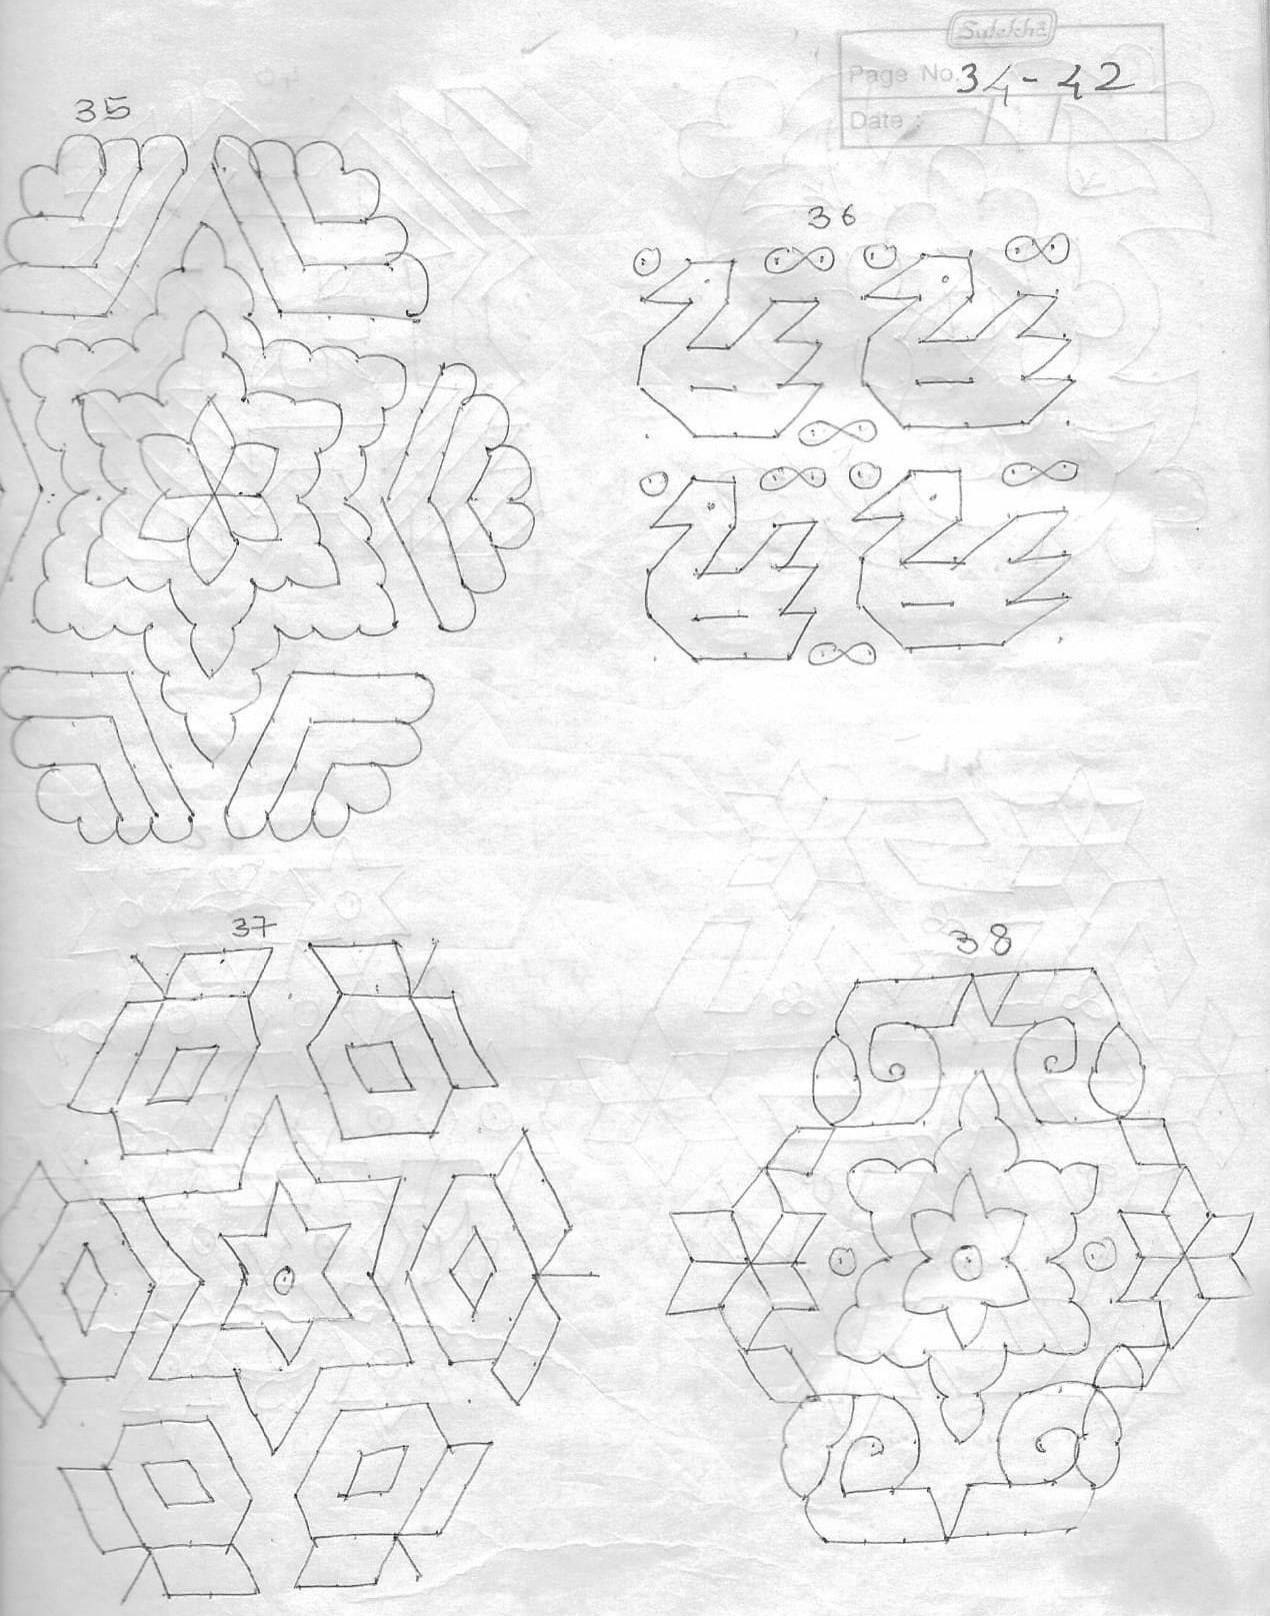 Sulekha
Page No. 34-42
Date :
35
36
37
38